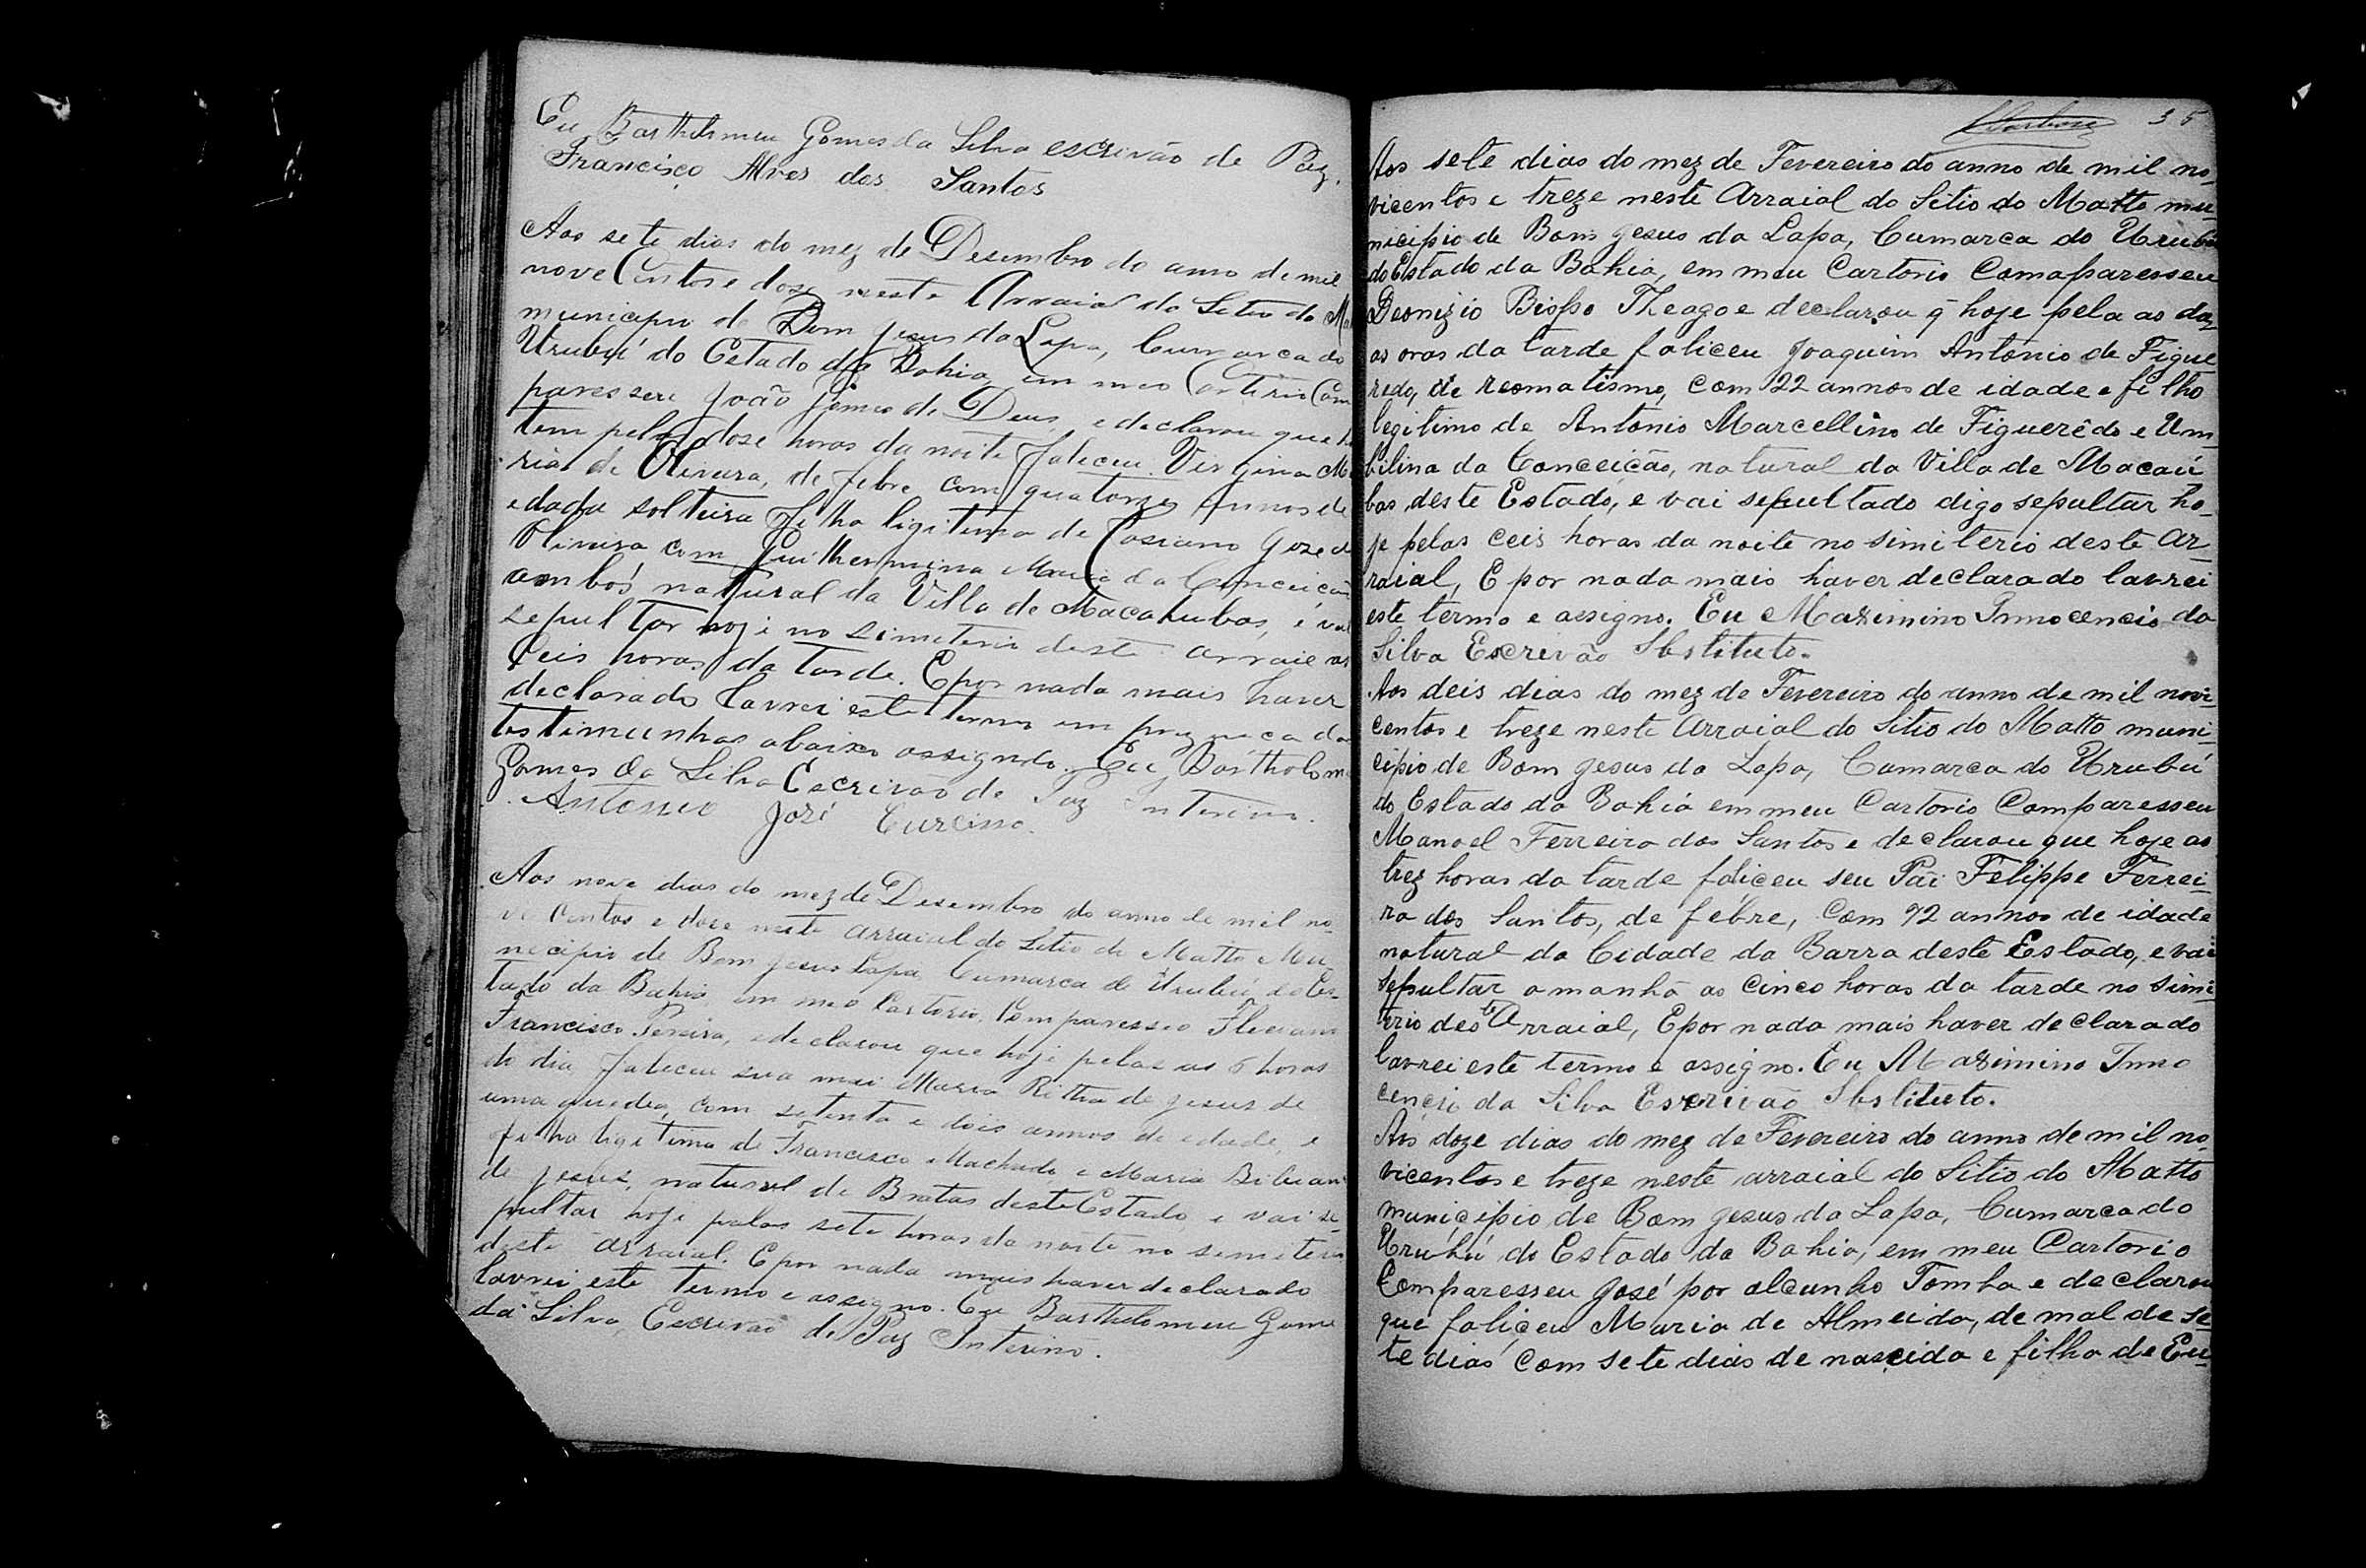 Eu Bartholomeu Gomes da Silva escrivão de Paz.
Francisco Alves dos Santos
Aos sete dias do mez de Desembro do anno de mil
nove Centos e dose neste Arraial do Setio do Ma
municipio de Bom Jesus da Lapa, Cumarca do
Urubú do Estado da Bahia, em meo Cartorio Com
paresseu João Gomes de Deus, e declarou que h
tem pelas dose horas da noite faleceu Virginia M
ria de Olivera, de febre com quatorze annos de
edada solteira filha ligitima de Casiano Joze d
Olivera com Guilhermina Maria da Conceição
ambos natural da Villa de Macahubas, e vai
sepultar hoje no simeterio deste arraial as
Ceis horas da tarde. E por nada mais haver
declarado lavrei este termo em prezenca das
testimunhas abaixo assignado. Eu Bartholome
Gomes da Silva Escrivão de Paz Interino.
Antonio José Curcino.
Aos nove dias do mez de Desembro do anno de mil no-
ve Centos e dose neste arraial do Setio do Matto Mu
necipio de Bom Jesus Lapa, Cumarca de Urubú do Es-
tado da Bahia em meo Cartorio, Comparesseo
Francisco Pereira, e declarou que hoje pelas as 6 horas
do dia faleceu sua mai Maria Ritha de Jesus de
uma queda, com setenta e dois annos de edade, e
filha ligitima de Francisco Machado e Maria
de Jesus, natural de Brotas deste Estado e vai se-
pultar hoje pelas sete horas da noite no semeterio
deste arraial. E por nada mais haver declarado
lavrei este termo e assigno. Eu Bartholomeu Gome
da Silva, Escrivão de Paz Interino.
35
Aos sete dias do mez de Fevereiro do anno de mil no-
vicentos e treze neste Arraial do Sitio do Matto mu-
nicipio de Bom Jesus da Lapa, Cumarca do Urubú
do Estado da Bahia, em meu Cartorio Comaparesseu
Deonizio Bispo Theago e declarou q̃ hoje pela as da
as oras da tarde faliceu Joaquim Antonio de Figue
redo, de reomatismo, com 22 annos de idade e filho
legitimo de Antonio Marcellino de Figuerêdo e Um-
bilina da Conceição, natural da Villa de Macaú
bas deste Estado, e vai sepultado digo sepultar ho-
je pelas ceis horas da noite no simiterio deste Ar-
raial, E por nada mais haver declarado lavrei
este termo e assigno. Eu Maximino Innocencio da
Silva Escrivão Sbstituto.
Aos deis dias do mez de Fevereiro do anno de mil novi
centos e treze neste Arraial do Sitio do Matto muni-
cipio de Bom Jesus da Lapa, Cumarca do Urubú
do Estado da Bahia em meu Cartorio Comparesseu
Manoel Ferreira dos Santos e declarou que hoje as
trez horas da tarde faliceu seu Pai Felippe Ferrei-
ra dos Santos, de febre, com 92 annos de idade
natural da Cidade da Barra deste Estado, e vai
sepultar amanhã as Cinco horas da tarde no simi
terio deste Arraial, E por nada mais haver declarado
lavrei este termo e assigno. Eu Maximino Inno
cencio da Silva Escrivão Sbstituto.
Aos doze dias do mez de Fevereiro do anno de mil no-
vicentos e treze neste arraial do Sitio do Matto
municipio de Bom Jesus da Lapa, Cumarca do
Urubú do Estado da Bahia, em meu Cartorio
Comparesseu José por alcunha Tomba e declarou
que faliceu Maria de Almeida, de mal de se-
te dias com sete dias de nascida e filha de Eu-